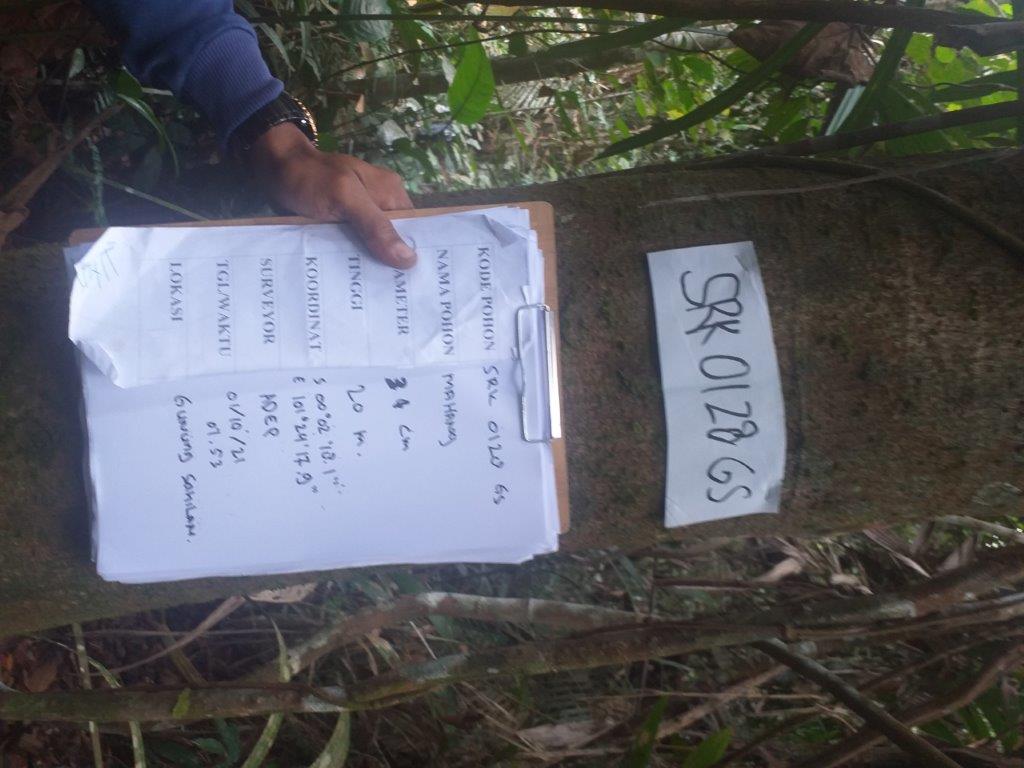 SRK 0128 GS
KODE POHON SRK 0128 GS
NAMA POHON MAHANG
AMETER 34 cm
TINGGI 20 m.
KOORDINAT S 00°02'18.1"
E 101°24'17.9"
SURVEYOR ADEP
TGL/WAKTU 01/10/21
07.53
LOKASI GUNUNG SAHILAN.